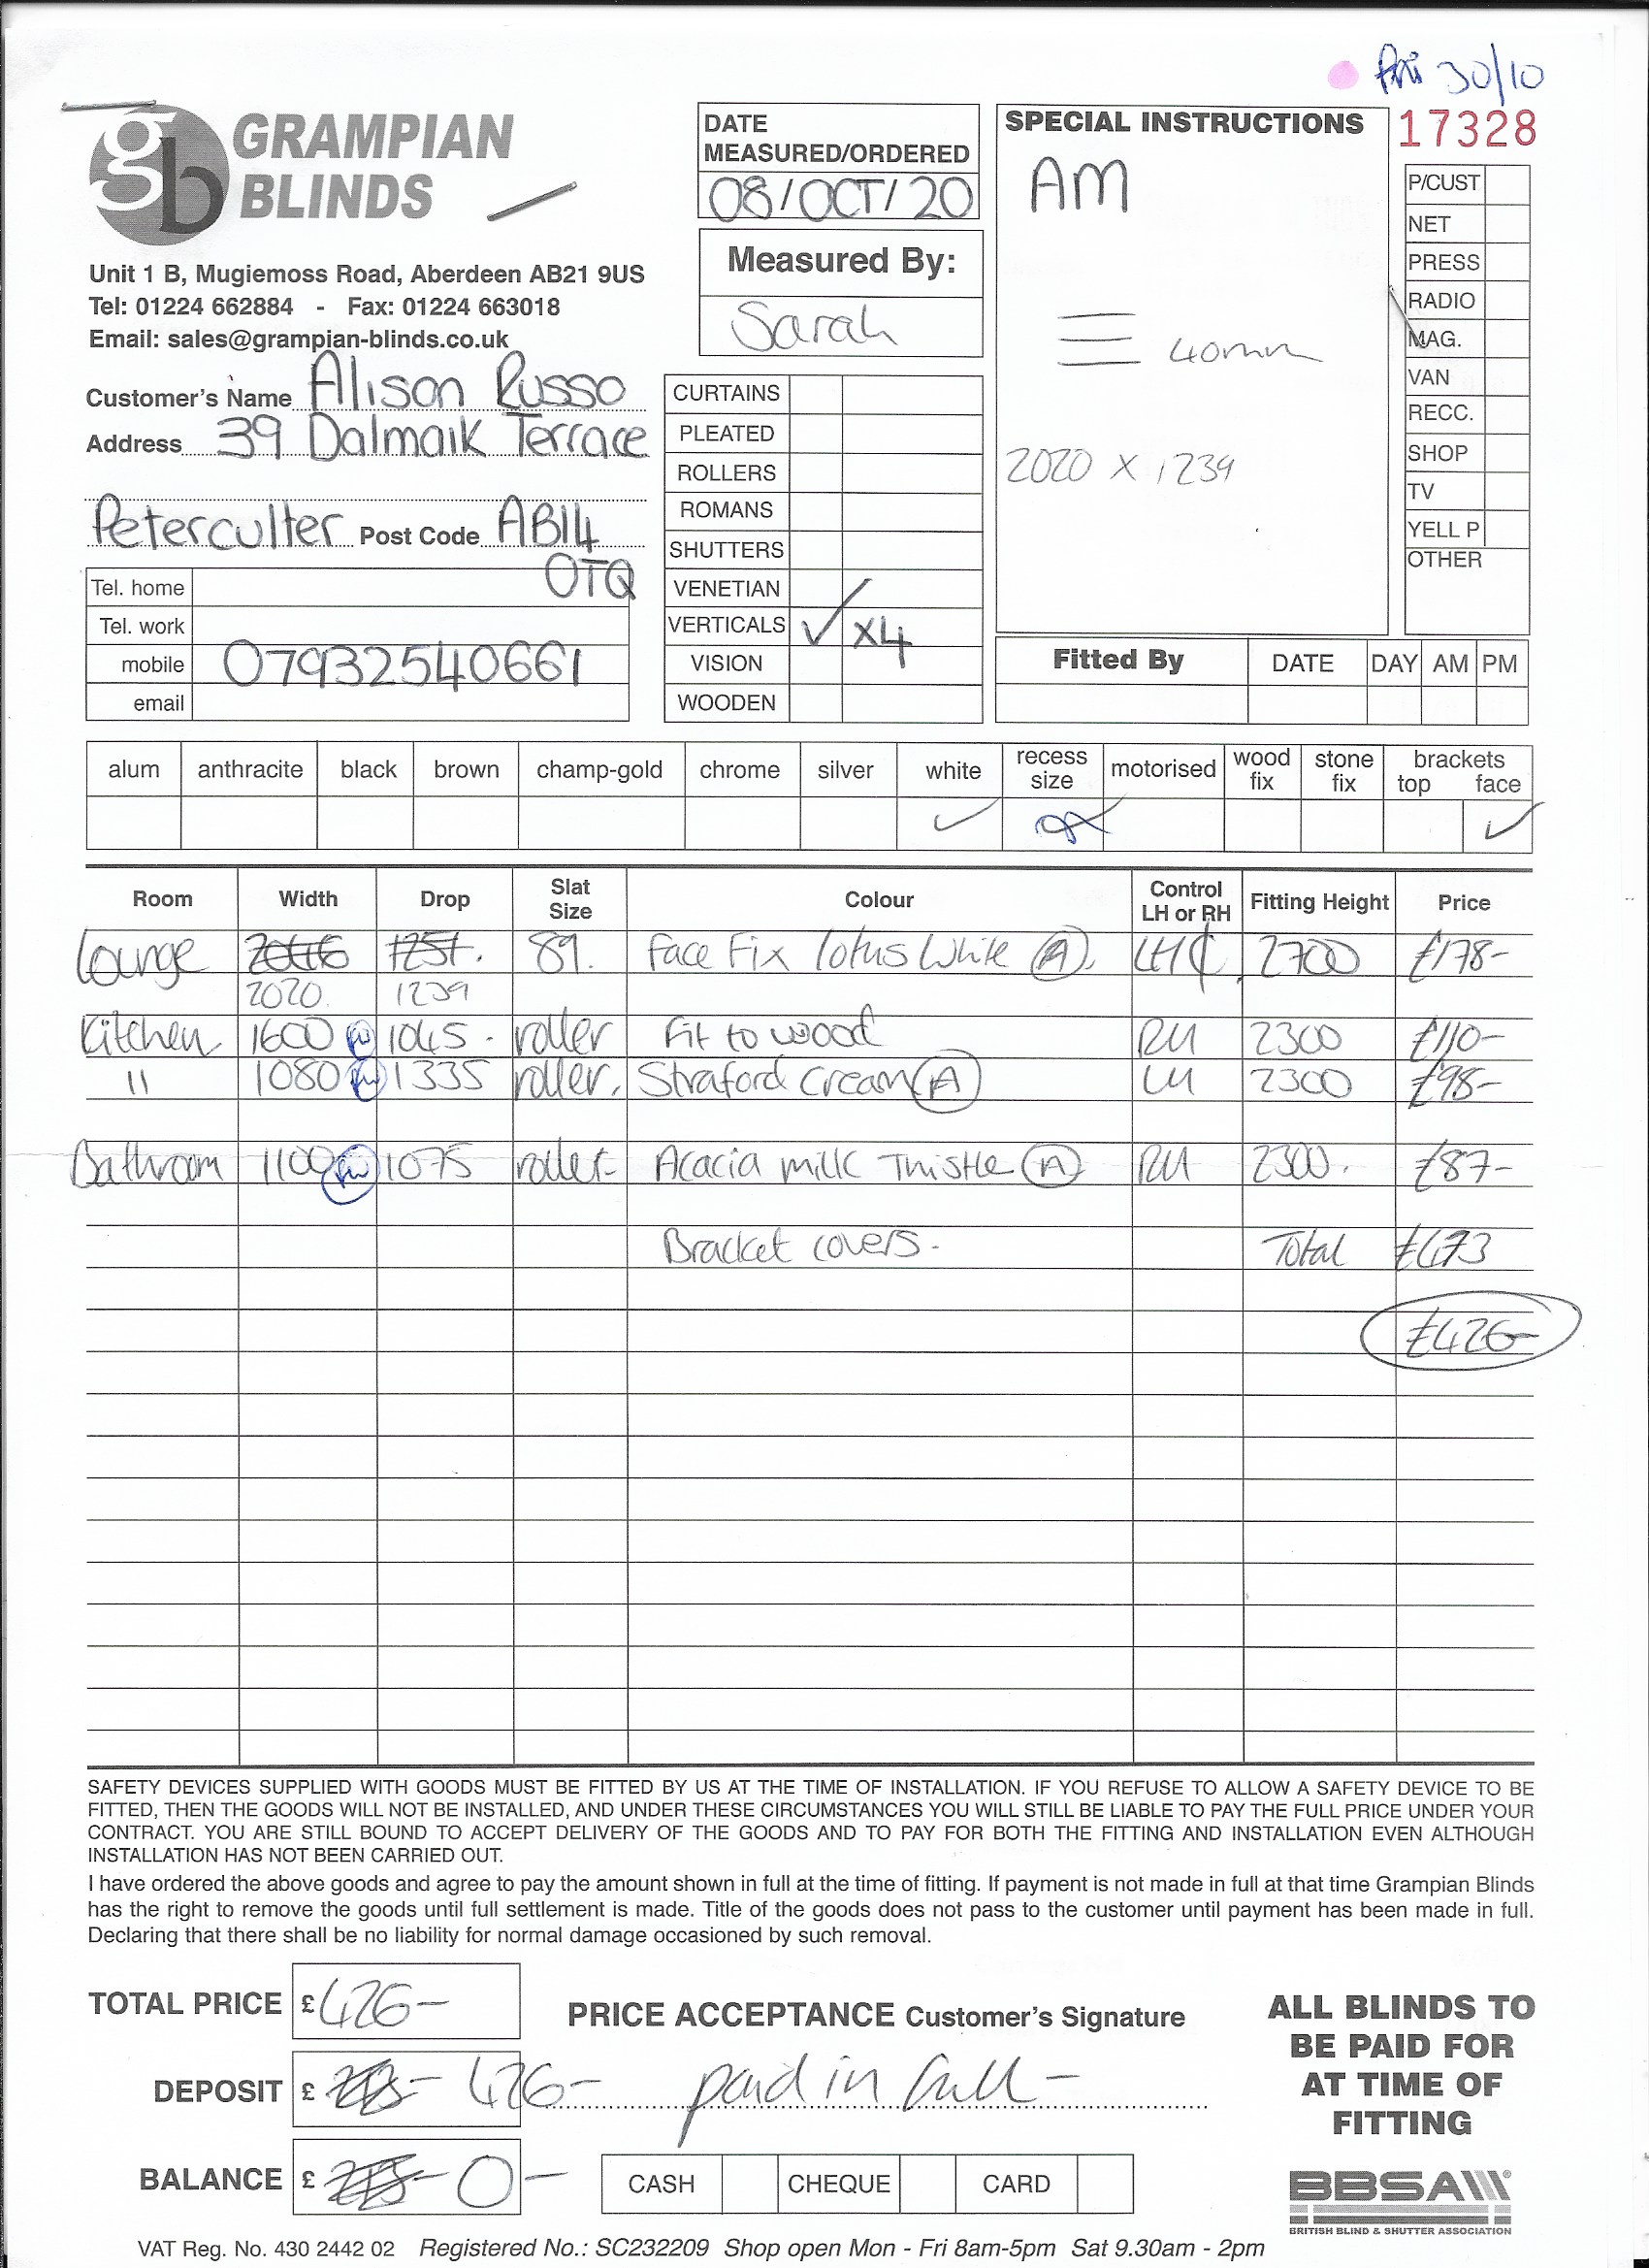 Fri 30/10
17328
gb GRAMPIAN
BLINDS
Unit 1 B, Mugiemoss Road, Aberdeen AB21 9US
Tel: 01224 662884 - Fax: 01224 663018
Email: sales@grampian-blinds.co.uk
Customer's Name Alison Russo
Address 39 Dalmaik Terrace
Peterculter Post Code AB14
0TQ
Tel. home
Tel. work
mobile 07932540661
email
DATE
MEASURED/ORDERED
08/OCT/20
Measured By:
Sarah
CURTAINS
PLEATED
ROLLERS
ROMANS
SHUTTERS
VENETIAN
VERTICALS ✓ x4
VISION
WOODEN
SPECIAL INSTRUCTIONS
AM
40mm
2020 x 1239
P/CUST
NET
PRESS
RADIO
MAG.
VAN
RECC.
SHOP
TV
YELL P
OTHER
Fitted By DATE DAY AM PM
alum anthracite black brown champ-gold chrome silver white recess size motorised wood fix stone fix brackets top face
✓ ✓
Room Width Drop Slat Size Colour Control LH or RH Fitting Height Price
Lounge 2046 1251. 89. Face Fix lotus White (A). LH 2700 £178-
2020 1239
Kitchen 1600 1045- roller Fit to wood RH 2300 £110-
" 1080 1335 roller. Straford Cream (A) LH 2300 £98-
Bathroom 1100 1075 roller- Acacia Milk Thistle (A) RH 2300. £87-
Bracket covers- Total £473
£426-
SAFETY DEVICES SUPPLIED WITH GOODS MUST BE FITTED BY US AT THE TIME OF INSTALLATION. IF YOU REFUSE TO ALLOW A SAFETY DEVICE TO BE
FITTED, THEN THE GOODS WILL NOT BE INSTALLED, AND UNDER THESE CIRCUMSTANCES YOU WILL STILL BE LIABLE TO PAY THE FULL PRICE UNDER YOUR
CONTRACT. YOU ARE STILL BOUND TO ACCEPT DELIVERY OF THE GOODS AND TO PAY FOR BOTH THE FITTING AND INSTALLATION EVEN ALTHOUGH
INSTALLATION HAS NOT BEEN CARRIED OUT.
I have ordered the above goods and agree to pay the amount shown in full at the time of fitting. If payment is not made in full at that time Grampian Blinds
has the right to remove the goods until full settlement is made. Title of the goods does not pass to the customer until payment has been made in full.
Declaring that there shall be no liability for normal damage occasioned by such removal.
TOTAL PRICE £426-
PRICE ACCEPTANCE Customer's Signature
DEPOSIT £ 426- paid in full-
BALANCE £ 0-
CASH CHEQUE CARD
ALL BLINDS TO
BE PAID FOR
AT TIME OF
FITTING
BBSA
BRITISH BLIND & SHUTTER ASSOCIATION
VAT Reg. No. 430 2442 02 Registered No.: SC232209 Shop open Mon - Fri 8am-5pm Sat 9.30am - 2pm